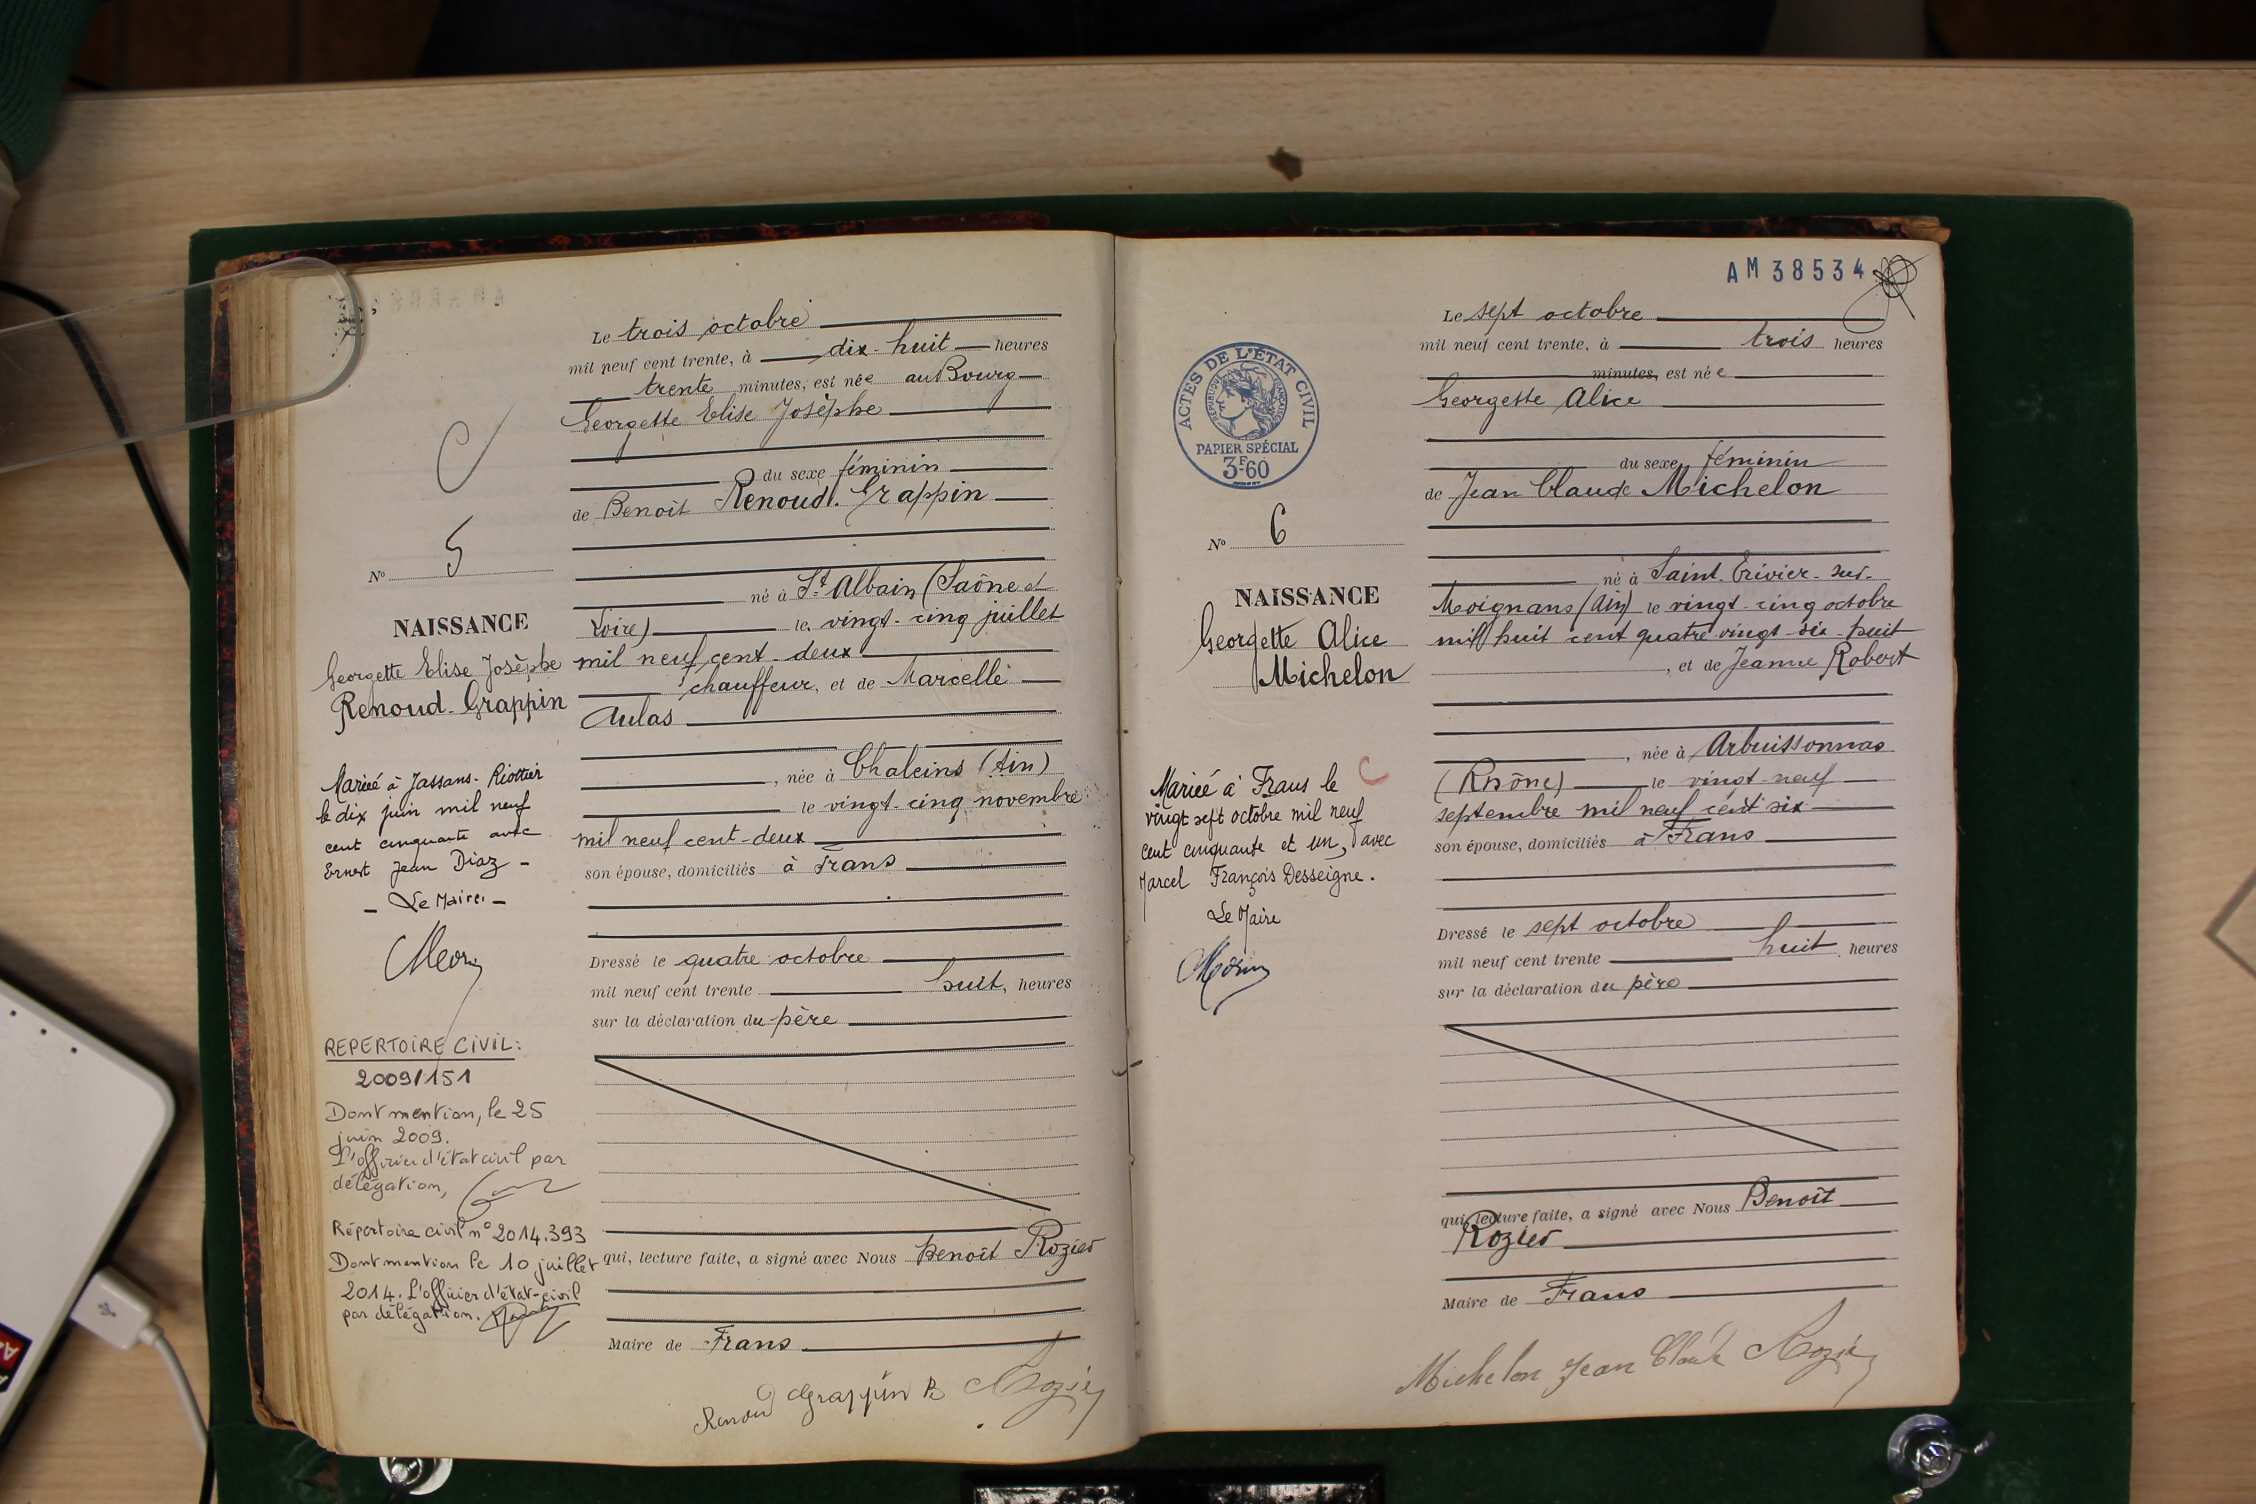 Le trois octobre
mil neuf cent trente, à dix-huit heures
trente minutes, est née au Bourg
Georgette Elise Josèphe
du sexe féminin
de Benoît Renoud-Grappin
né à St Albain (Saône et
Loire) le vingt-cinq juillet
mil neuf cent-deux
chauffeur, et de Marcelle
Aulas
, née à Chaleins (Ain)
le vingt-cinq novembre
mil neuf cent-deux
son épouse, domiciliés à Frans
Dressé le quatre octobre
mil neuf cent trente huit, heures
sur la déclaration du père
qui, lecture faite, a signé avec Nous Benoît Rozier
Maire de Frans
Renoud Grappin B Rozier
N° 5
NAISSANCE
Georgette Elise Josèphe
Renoud-Grappin
Mariée à Jassans-Riottier
le dix juin mil neuf
cent cinquante avec
Ernest Jean Diaz -
- Le Maire. -
REPERTOIRE CIVIL:
2009/151
Dont mention, le 25
juin 2009.
L'officier d'état civil par
délégation,
Répertoire civil n° 2014.393
Dont mention le 10 juillet
2014. L'officier d'état-civil
par délégation.
AM 38534
ACTES DE L'ÉTAT CIVIL
RÉPUBLIQUE FRANÇAISE
PAPIER SPÉCIAL
3F.60
N° 6
NAISSANCE
Georgette Alice
Michelon
Mariée à Frans le
vingt sept octobre mil neuf
cent cinquante et un, avec
Marcel François Desseigne.
Le Maire
Le sept octobre
mil neuf cent trente, à trois heures
minutes, est née
Georgette Alice
du sexe féminin
de Jean Claude Michelon
né à Saint-Trivier-sur-
Moignans (Ain) le vingt-cinq octobre
mil huit cent quatre vingt-dix-huit
, et de Jeanne Robert
, née à Arbuissonnas
(Rhône) le vingt-neuf
septembre mil neuf cent six
son épouse, domiciliés à Frans
Dressé le sept octobre
mil neuf cent trente huit heures
sur la déclaration du père
qui, lecture faite, a signé avec Nous Benoît
Rozier
Maire de Frans
Michelon Jean Claude Rozier